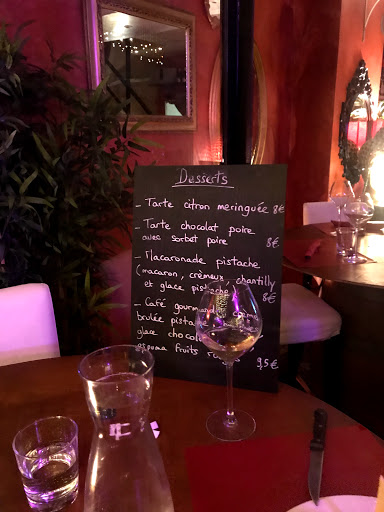 Desserts
- Tarte citron meringuée 8€
- Tarte chocolat poire
avec sorbet poire 8€
- Macaronade pistache
(macaron, crémeux, chantilly
et glace pistache 8€
- Café gourmand
brulée pista
glace choco
espuma fruits 9,5€